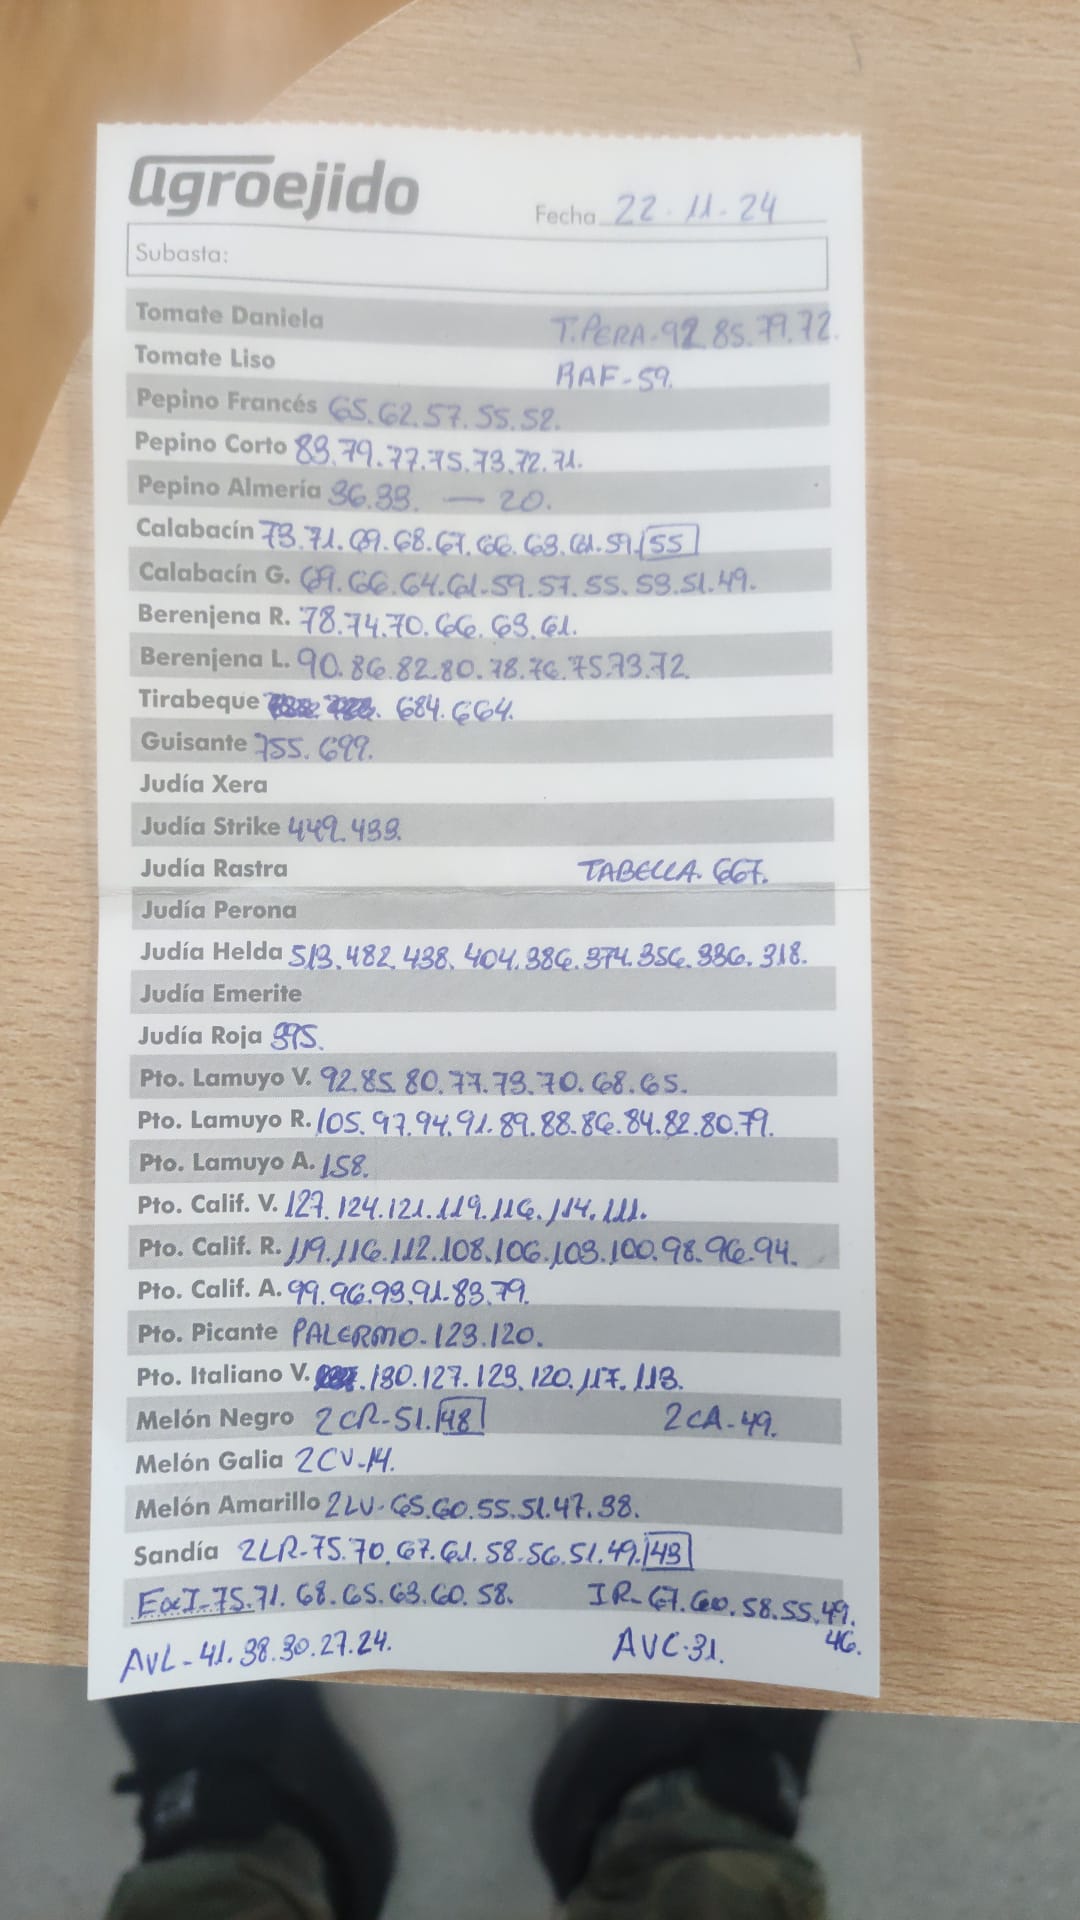 agroejido
Fecha 22-11-24
Subasta:
Tomate Daniela T.PERA-92.85.79.72.
Tomate Liso RAF-59.
Pepino Francés 65.62.57.55.52.
Pepino Corto 83.79.77.75.73.72.71.
Pepino Almería 36.33. — 20.
Calabacín 73.71.69.68.67.66.63.61.59.55
Calabacín G. 69.66.64.61.59.57.55.53.51.49.
Berenjena R. 78.74.70.66.63.61.
Berenjena L. 90.86.82.80.78.76.75.73.72.
Tirabeque 684.664.
Guisante 755.699.
Judía Xera
Judía Strike 449.433.
Judía Rastra TABELLA. 667.
Judía Perona
Judía Helda 513.482.438.404.386.374.356.336.318.
Judía Emerite
Judía Roja 395.
Pto. Lamuyo V. 92.85.80.77.73.70.68.65.
Pto. Lamuyo R. 105.97.94.91.89.88.86.84.82.80.79.
Pto. Lamuyo A. 158.
Pto. Calif. V. 127.124.121.119.116.114.111.
Pto. Calif. R. 119.116.112.108.106.103.100.98.96.94.
Pto. Calif. A. 99.96.93.91.83.79.
Pto. Picante PALERMO-123.120.
Pto. Italiano V. 130.127.123.120.117.113.
Melón Negro 2CR-51.48 2CA-49.
Melón Galia 2CV-14.
Melón Amarillo 2LV-65.60.55.51.47.38.
Sandía 2LR-75.70.67.61.58.56.51.49.43
ExI-75.71.68.65.63.60.58. IR-67.60.58.55.49.
46.
AVL-41.38.30.27.24. AVC-31.